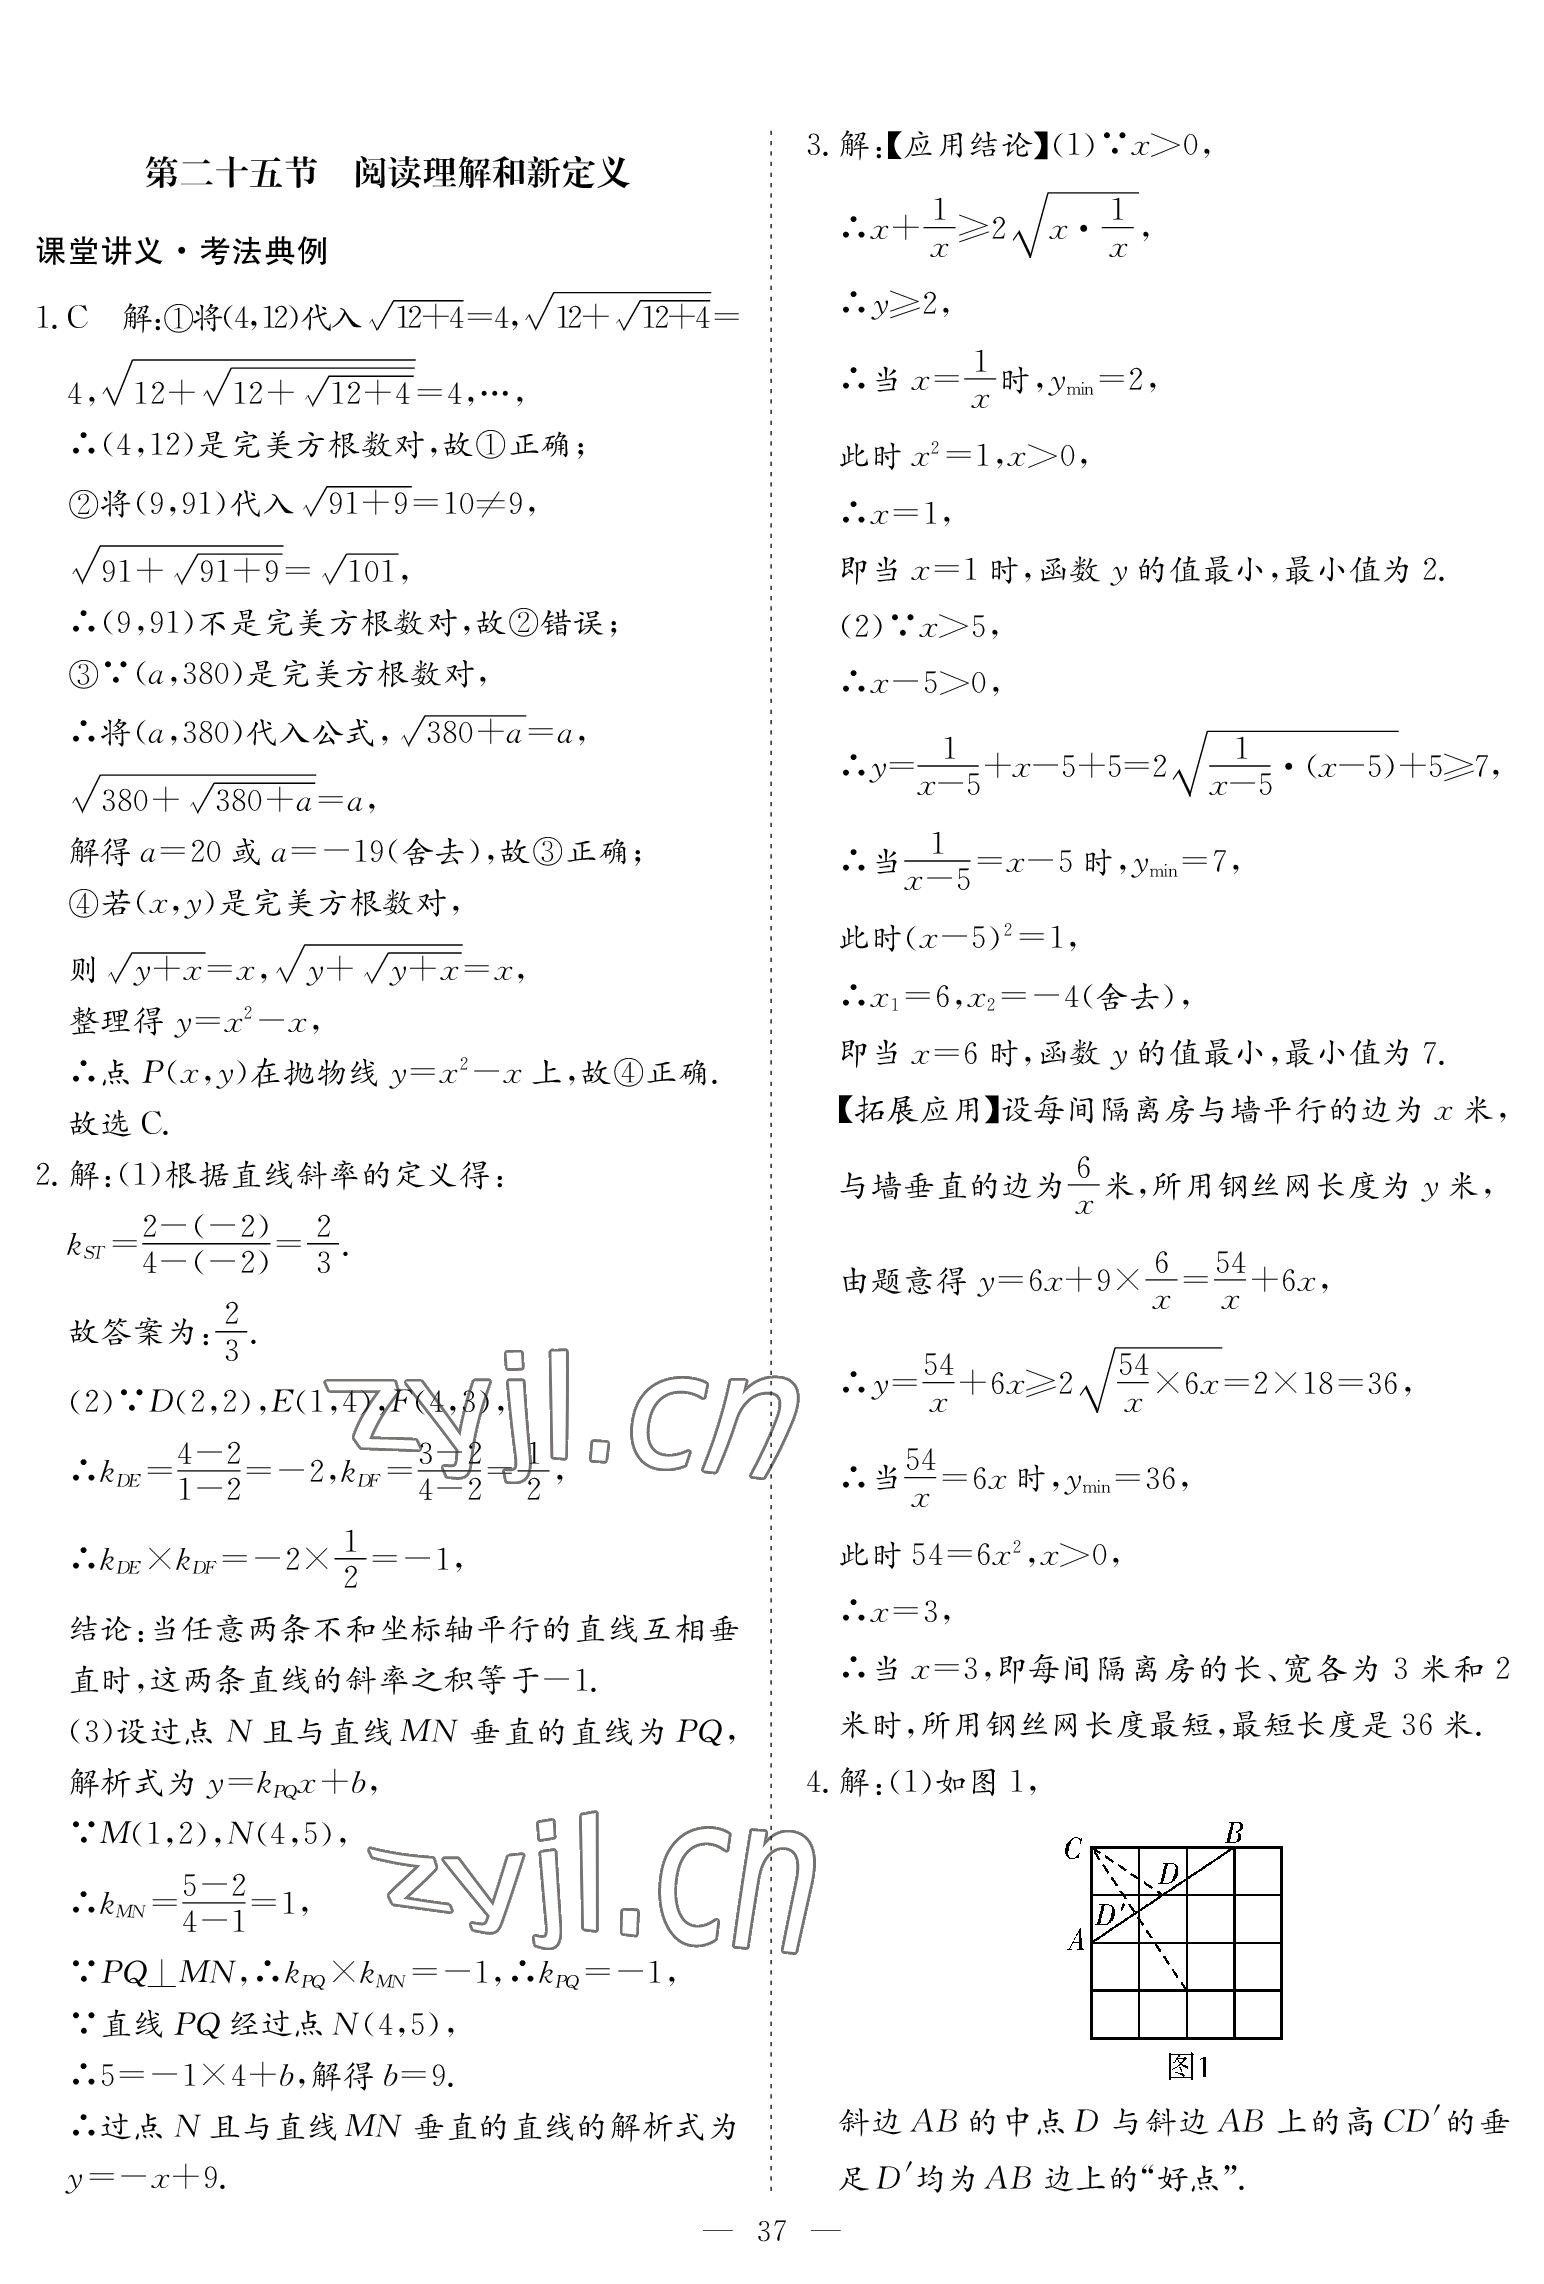 第二十五节　阅读理解和新定义
课堂讲义·考法典例
1. C　解:①将(4,12)代入√(12+4)=4,√(12+√(12+4))=
4,√(12+√(12+√(12+4)))=4,…,
∴(4,12)是完美方根数对,故①正确;
②将(9,91)代入√(91+9)=10≠9,
√(91+√(91+9))=√101,
∴(9,91)不是完美方根数对,故②错误;
③∵(a,380)是完美方根数对,
∴将(a,380)代入公式,√(380+a)=a,
√(380+√(380+a))=a,
解得 a=20 或 a=-19(舍去),故③正确;
④若(x,y)是完美方根数对,
则√(y+x)=x,√(y+√(y+x))=x,
整理得 y=x²-x,
∴点 P(x,y)在抛物线 y=x²-x 上,故④正确.
故选 C.
2. 解:(1)根据直线斜率的定义得:
k_ST=(2-(-2))/(4-(-2))=2/3.
故答案为:2/3.
(2)∵D(2,2),E(1,4),F(4,3),
∴k_DE=(4-2)/(1-2)=-2,k_DF=(3-2)/(4-2)=1/2,
∴k_DE×k_DF=-2×1/2=-1,
结论:当任意两条不和坐标轴平行的直线互相垂
直时,这两条直线的斜率之积等于-1.
(3)设过点 N 且与直线 MN 垂直的直线为 PQ,
解析式为 y=k_PQ x+b,
∵M(1,2),N(4,5),
∴k_MN=(5-2)/(4-1)=1,
∵PQ⊥MN,∴k_PQ×k_MN=-1,∴k_PQ=-1,
∵直线 PQ 经过点 N(4,5),
∴5=-1×4+b,解得 b=9.
∴过点 N 且与直线 MN 垂直的直线的解析式为
y=-x+9.
3. 解:【应用结论】(1)∵x>0,
∴x+1/x≥2√(x·1/x),
∴y≥2,
∴当 x=1/x 时,y_min=2,
此时 x²=1,x>0,
∴x=1,
即当 x=1 时,函数 y 的值最小,最小值为 2.
(2)∵x>5,
∴x-5>0,
∴y=1/(x-5)+x-5+5=2√(1/(x-5)·(x-5))+5≥7,
∴当1/(x-5)=x-5 时,y_min=7,
此时(x-5)²=1,
∴x₁=6,x₂=-4(舍去),
即当 x=6 时,函数 y 的值最小,最小值为 7.
【拓展应用】设每间隔离房与墙平行的边为 x 米,
与墙垂直的边为6/x米,所用钢丝网长度为 y 米,
由题意得 y=6x+9×6/x=54/x+6x,
∴y=54/x+6x≥2√(54/x×6x)=2×18=36,
∴当54/x=6x 时,y_min=36,
此时 54=6x²,x>0,
∴x=3,
∴当 x=3,即每间隔离房的长、宽各为 3 米和 2
米时,所用钢丝网长度最短,最短长度是 36 米.
4. 解:(1)如图 1,
C
B
D
D′
A
图1
斜边 AB 的中点 D 与斜边 AB 上的高 CD′的垂
足 D′均为 AB 边上的“好点”.
— 37 —
zyjl.cn
zyjl.cn